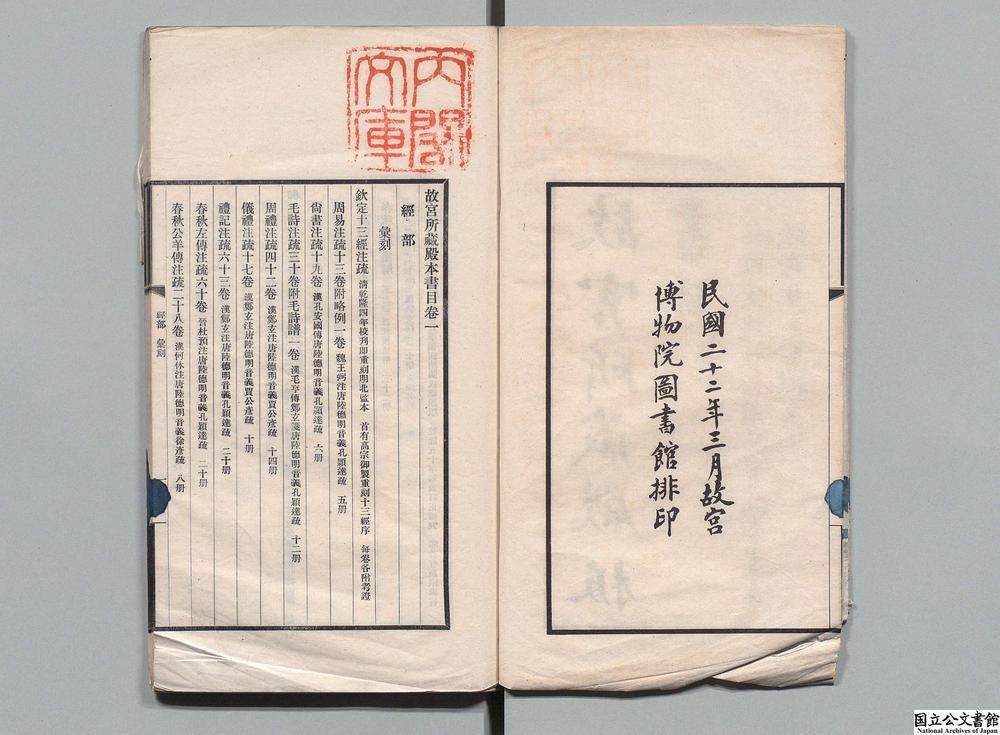 民國二十二年三月故宮
博物院圖書館排印
內閣
文庫
故宮所藏殿本書目卷一
經部
彙刻
欽定十三經注疏 清乾隆四年校刊即重刻明北監本 首有高宗御製重刻十三經序 每卷各附考證
周易注疏十三卷附略例一卷 魏王弼注唐陸德明音義孔穎達疏 五册
尙書注疏十九卷 漢孔安國傳唐陸德明音義孔穎達疏 六册
毛詩注疏三十卷附毛詩譜一卷 漢毛亨傳鄭玄箋唐陸德明音義孔穎達疏 十二册
周禮注疏四十二卷 漢鄭玄注唐陸德明音義賈公彥疏 十四册
儀禮注疏十七卷 漢鄭玄注唐陸德明音義賈公彥疏 十册
禮記注疏六十三卷 漢鄭玄注唐陸德明音義孔穎達疏 二十册
春秋左傳注疏六十卷 晉杜預注唐陸德明音義孔穎達疏 二十册
春秋公羊傳注疏二十八卷 漢何休注唐陸德明音義徐彥疏 八册
經部 彙刻 一
国立公文書館
National Archives of Japan